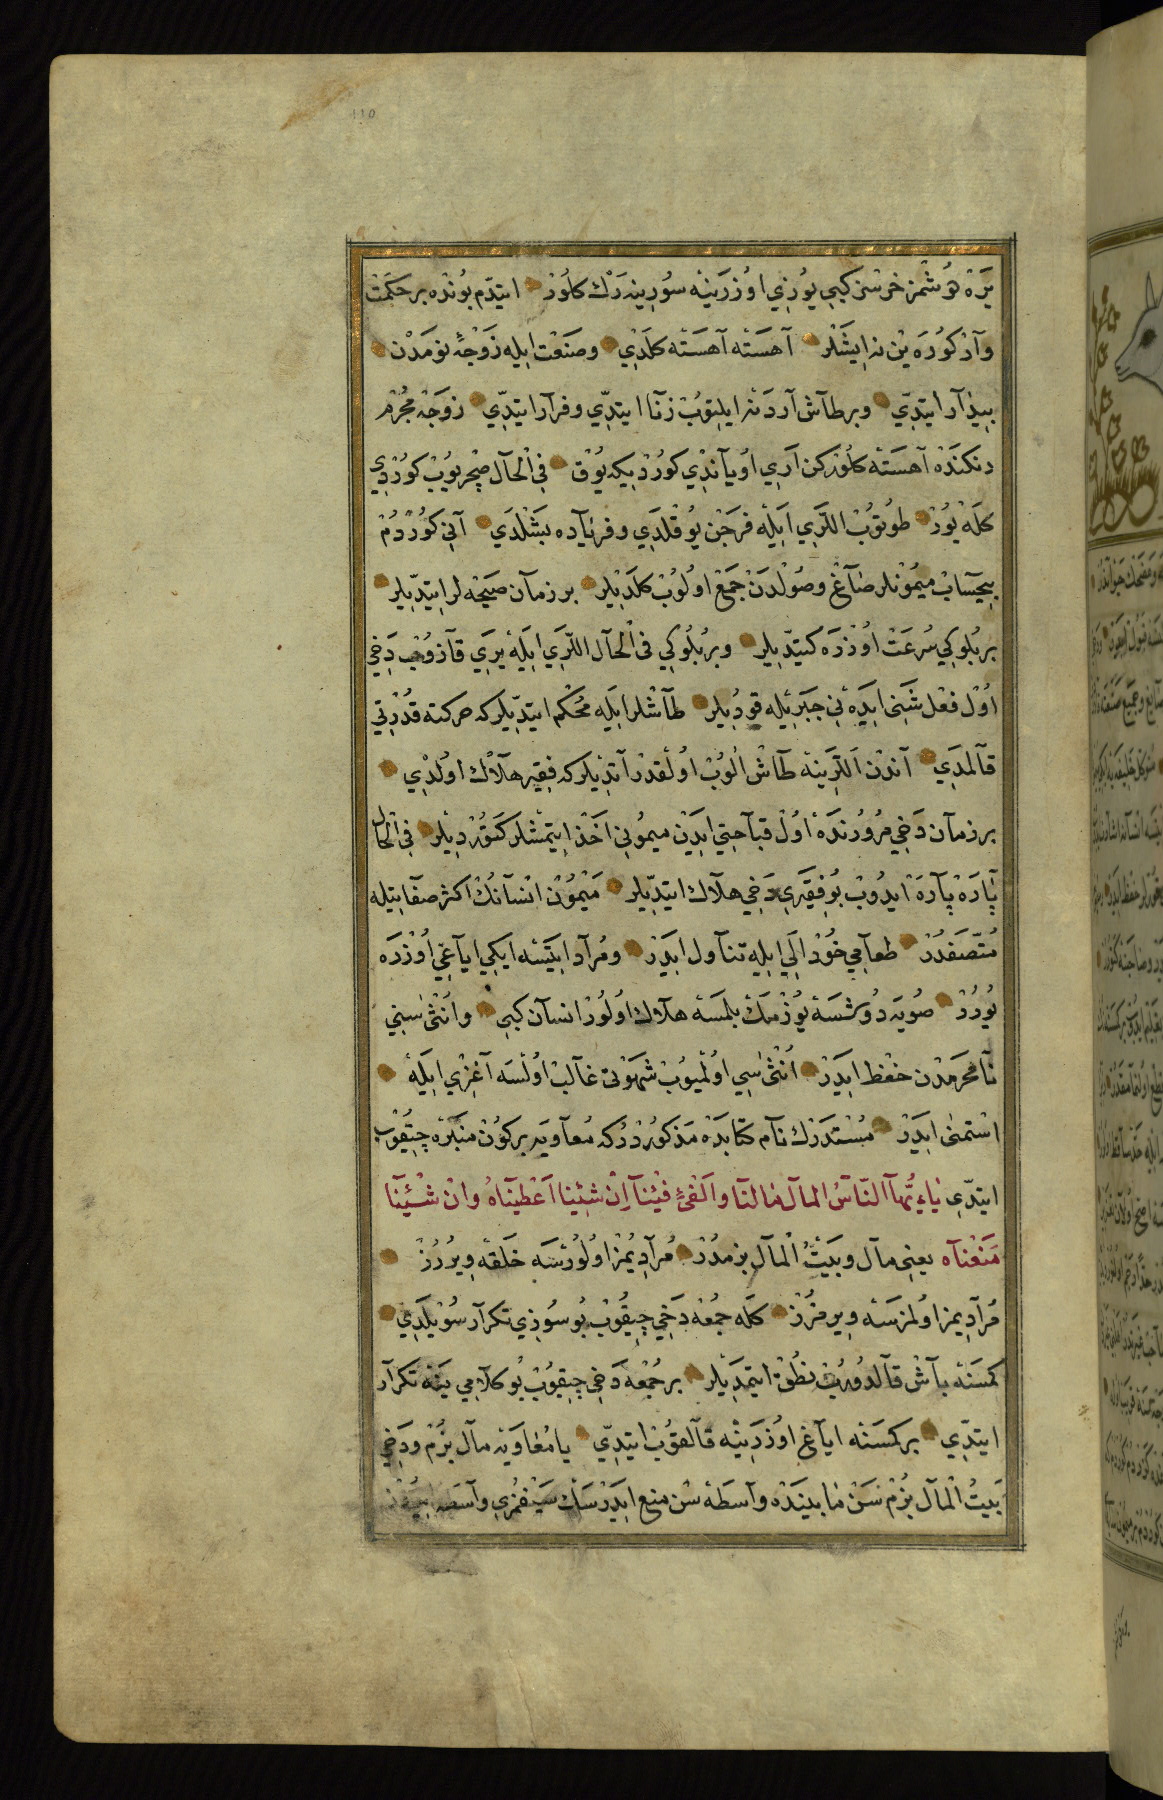 ١١٥
يَرَهْ دُوشْمَز خرسز كبِي يُوزِي اوُزرَينِه سوُرِينهرَك كلوُز ايتدّم بوُنده بر حكمَت
وآر كورَه يِن نه ايشَلر آهَستَه آهَستَه كلَدْي وصنَعَت ايله زَوجَهءِ نومَدْن
بِيذآر ايتدِّي وبر طآش آردَنه ايليتوُب زنَا ايتدِّي وفرآر ايتدِّي زوَجَهْ مجُرْم
دنكندَه آهسَته كلوُركن آرِي اوُيآندْي كورُديكه يوُق فِي اْلحآل صِچْريوُب كورُدِي
كلَه يوُر طوُتوُب اللَرَي اَيلَه فرجَن يوُقلَدِي وفريآده بَشْلَدَي آنِي كوُرْدُم
بيحسَابْ ميموُنلر صَآغ وصوُلْدَن جمَع اولُوب كلدَيلر بر زمآن صيَحْه لر ايتدّيلر
بربُلوكِي سُرعَت اوُزرَه كيتدّيلر وبربُلوُكِي فى اْلحآل اللّرَي ايَلَه يرَي قآزوُب دَخِي
اوُل فعْل شَنِيع ايدَه نِي جبَر ئيله قوديلر طآشلر ايَله محُكْم ايتدّيلركه حركته قُدْرتِي
قآلمَدِي آندْن اَللّرَينه طآش آلوُب اوُلقدْر آتدْيلركه فقِيه هلآك اولُدْي
بر زمآن دَخِي مرُورُندَه اوُل قبآحتِي ايدَين ميموُنِي اَخْذ ايتمْشلر كتوُرديلر فِي اْلحال
پَآرَه پَآرَه ايدُوب بوُفقيَرِي دخِي هلآك ايتدّيلر مَيْموُن انْسآنكْ اكثر صفآتيله
مُتّصَفدُر طعآمِي خُود اَلِي ايله تنآول ايدَر ومُرآد ايتَسَه ايكِي ايآغِي اوُزرَه
يوُرُر صوُيَه دُوشسَه يوُزمَك بلمَسَه هلآك اولوُر انسآن كبِي وانُثْى سنِي
نآمحَرمَدْن حفْظ ايدَر اُنثْى سِي اوُلميوُب شهَوتِى غآلب اوُلسَه آغزِي ايَلَه
استمنى ايدَر مُستَدرَك نآم كتابدَه مَذكورُدُركه مُعآويَه بركوُن منبَرَه چيقوُب
ايتدّيِ يٰاءيُّهآ النَّآسُ المآل مٰالنَا وآلفئُ فيئنَآ اِنْ شِئينا اَعْطينآهُ وانْ شئِينَآ
مَنَعْنآه يعنِى مآل وبيَتُ اْلمآل بزمدُر مُرآديمُز اولوُرسَه خلَقَه ويرُرُز
مُرآدِيمز اولمزسَه ويرمزُز كلَه جمعُه دَخِي چِيقُوب بو سوُزِي تكرآر سوُيلَدِي
كمسَنَه بآش قآلدرُب نطُق ايتمَديلر برجمُعْه دَخِي چيقوُب بُو كلآمِي ينَه تكرآر
ايتدّي بركمسَنه ايآغ اوُزرَينه قآلقوُب ايتدِّي يا مُعٰاويَه مآل بزُم ودَخِي
بَيتُ اْلمآل بزُم سَن مٰا بينَدَه وآسطَه سْن منع ايدَرسَك